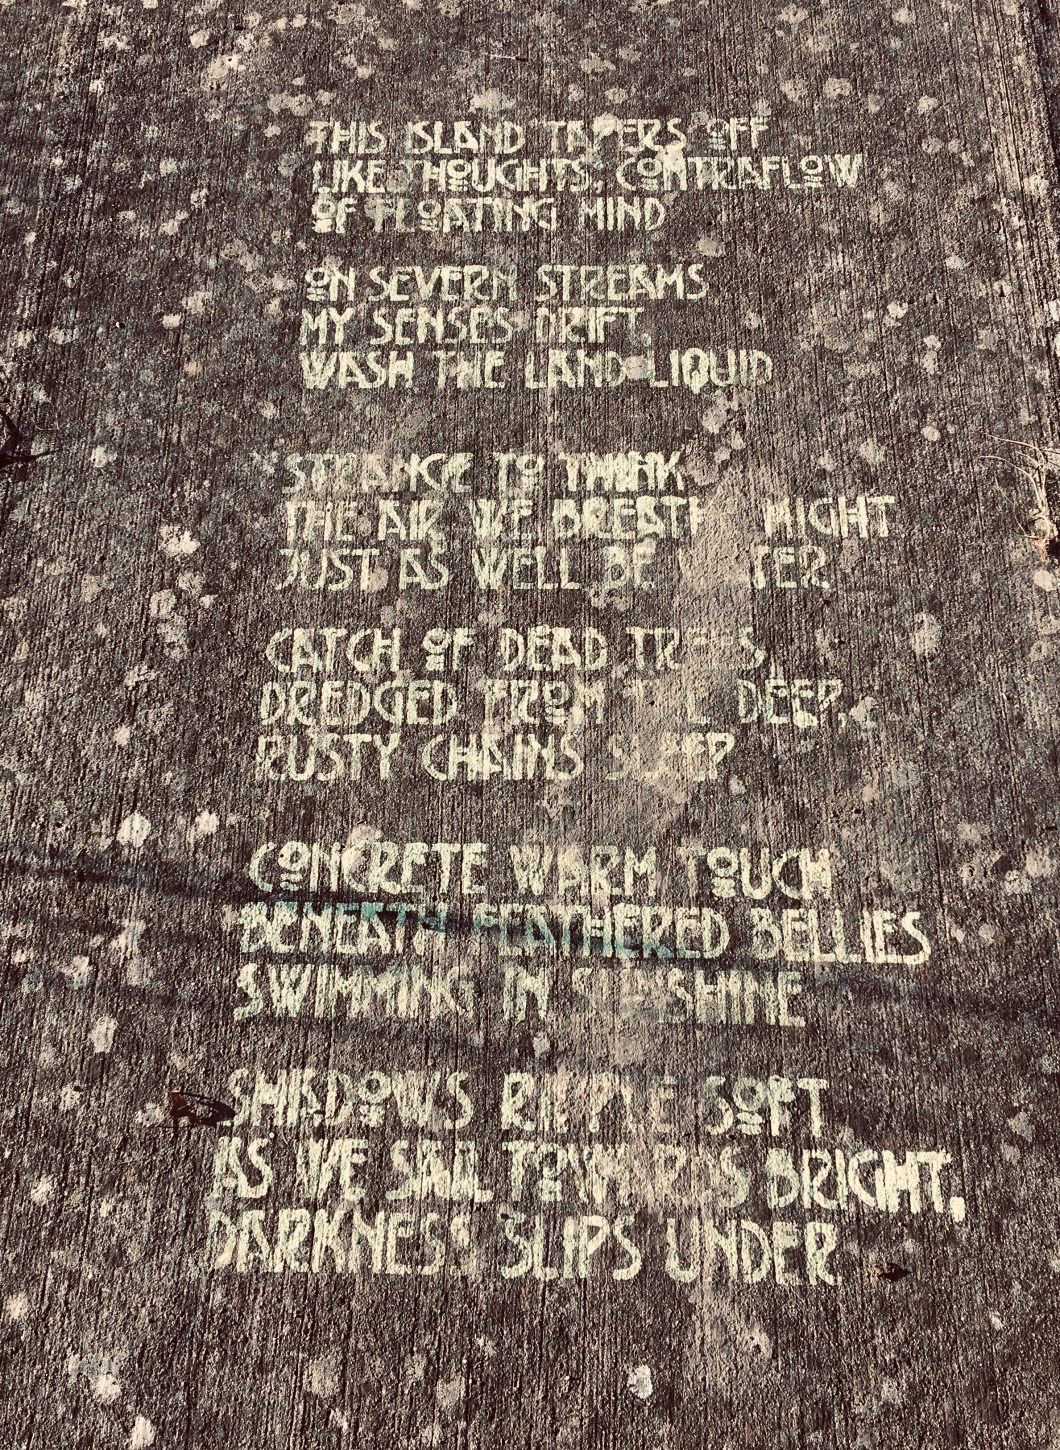 THIS ISLAND TAPERS OFF
LIKE THOUGHTS, CONTRAFLOW
OF FLOATING MIND
ON SEVERN STREAMS
MY SENSES DRIFT,
WASH THE LAND LIQUID
STRANGE TO THINK
THE AIR WE BREATHE MIGHT
JUST AS WELL BE WATER
CATCH OF DEAD TREES,
DREDGED FROM THE DEEP,
RUSTY CHAINS SLEEP
CONCRETE WARM TOUCH
BENEATH FEATHERED BELLIES
SWIMMING IN SUNSHINE
SHADOWS RIPPLE SOFT
AS WE SAIL TOWARDS BRIGHT,
DARKNESS SLIPS UNDER